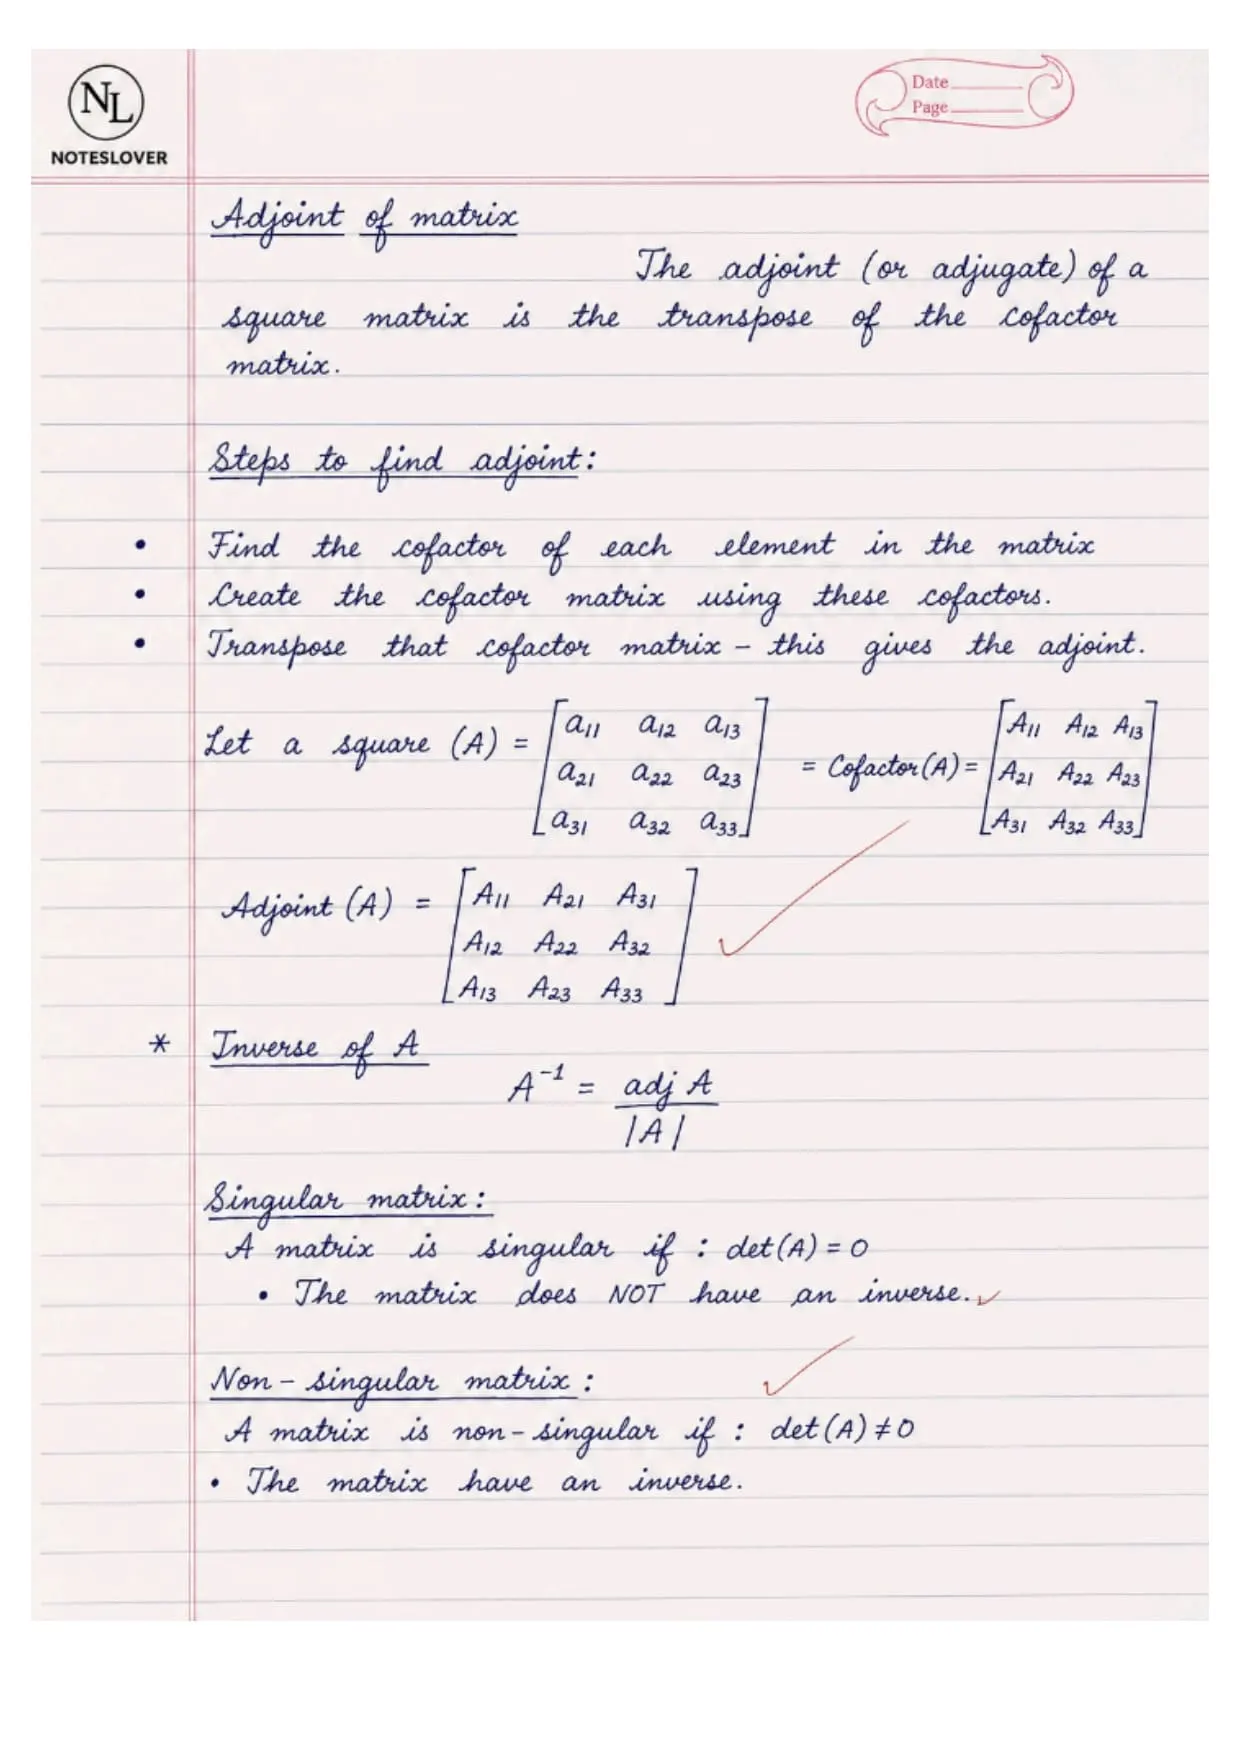 NL
NOTESLOVER
Date
Page
Adjoint of matrix
The adjoint (or adjugate) of a
square matrix is the transpose of the cofactor
matrix.
Steps to find adjoint:
• Find the cofactor of each element in the matrix
• Create the cofactor matrix using these cofactors.
• Transpose that cofactor matrix - this gives the adjoint.
Let a square (A) = [a11 a12 a13 = Cofactor(A) = [A11 A12 A13]
a21 a22 a23 A21 A22 A23
a31 a32 a33] A31 A32 A33]
Adjoint (A) = [A11 A21 A31]
A12 A22 A32
A13 A23 A33
* Inverse of A
A⁻¹ = adj A
|A|
Singular matrix:
A matrix is singular if : det(A) = 0
• The matrix does NOT have an inverse.
Non-singular matrix :
A matrix is non-singular if : det(A) ≠ 0
• The matrix have an inverse.